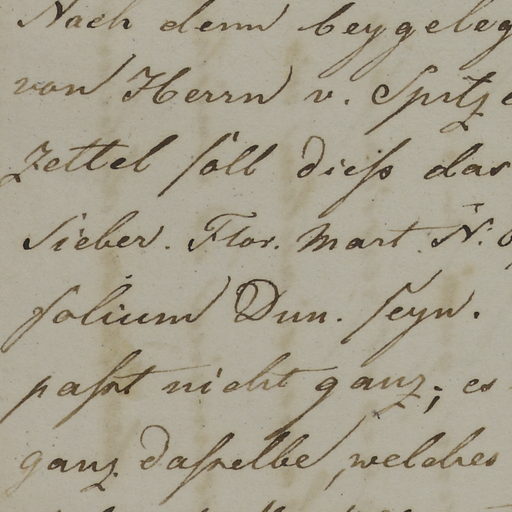 Nach dem beygeleg
von Herrn v. Spitz
Zettel soll dieß das
Sieber. Flor. Mart. N.
folium Dun. seyn.
paßt nicht ganz; es
ganz dasselbe, welches